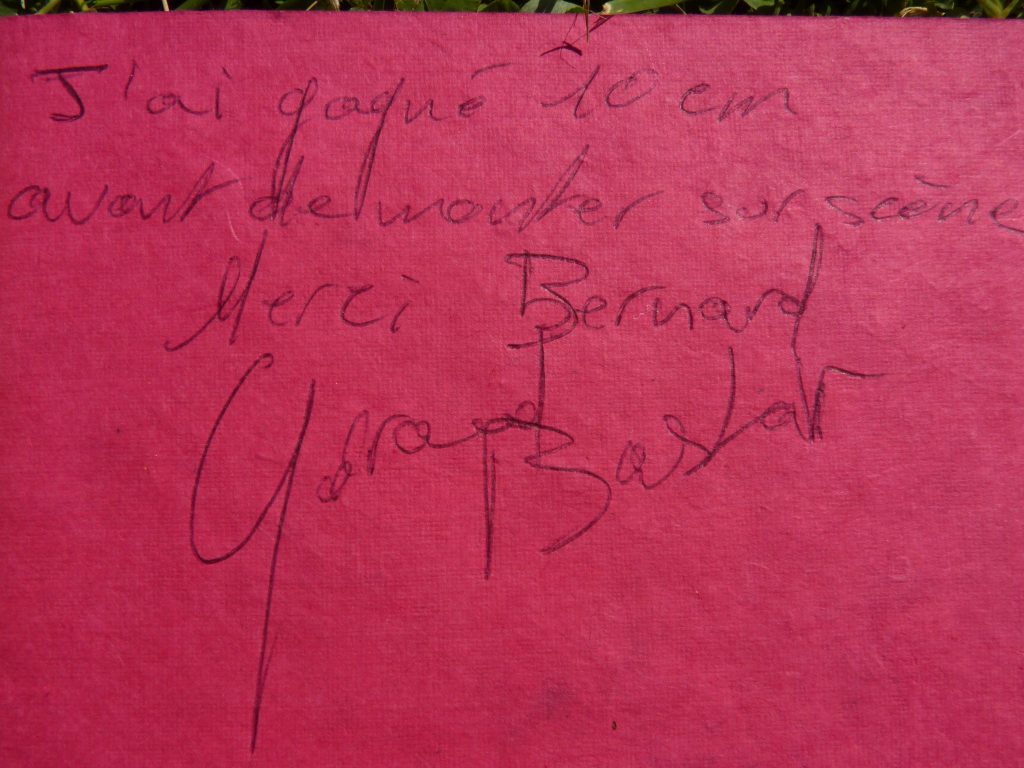 J'ai gagné 10 cm
avant de monter sur scène
Merci Bernard
Gérard Baste